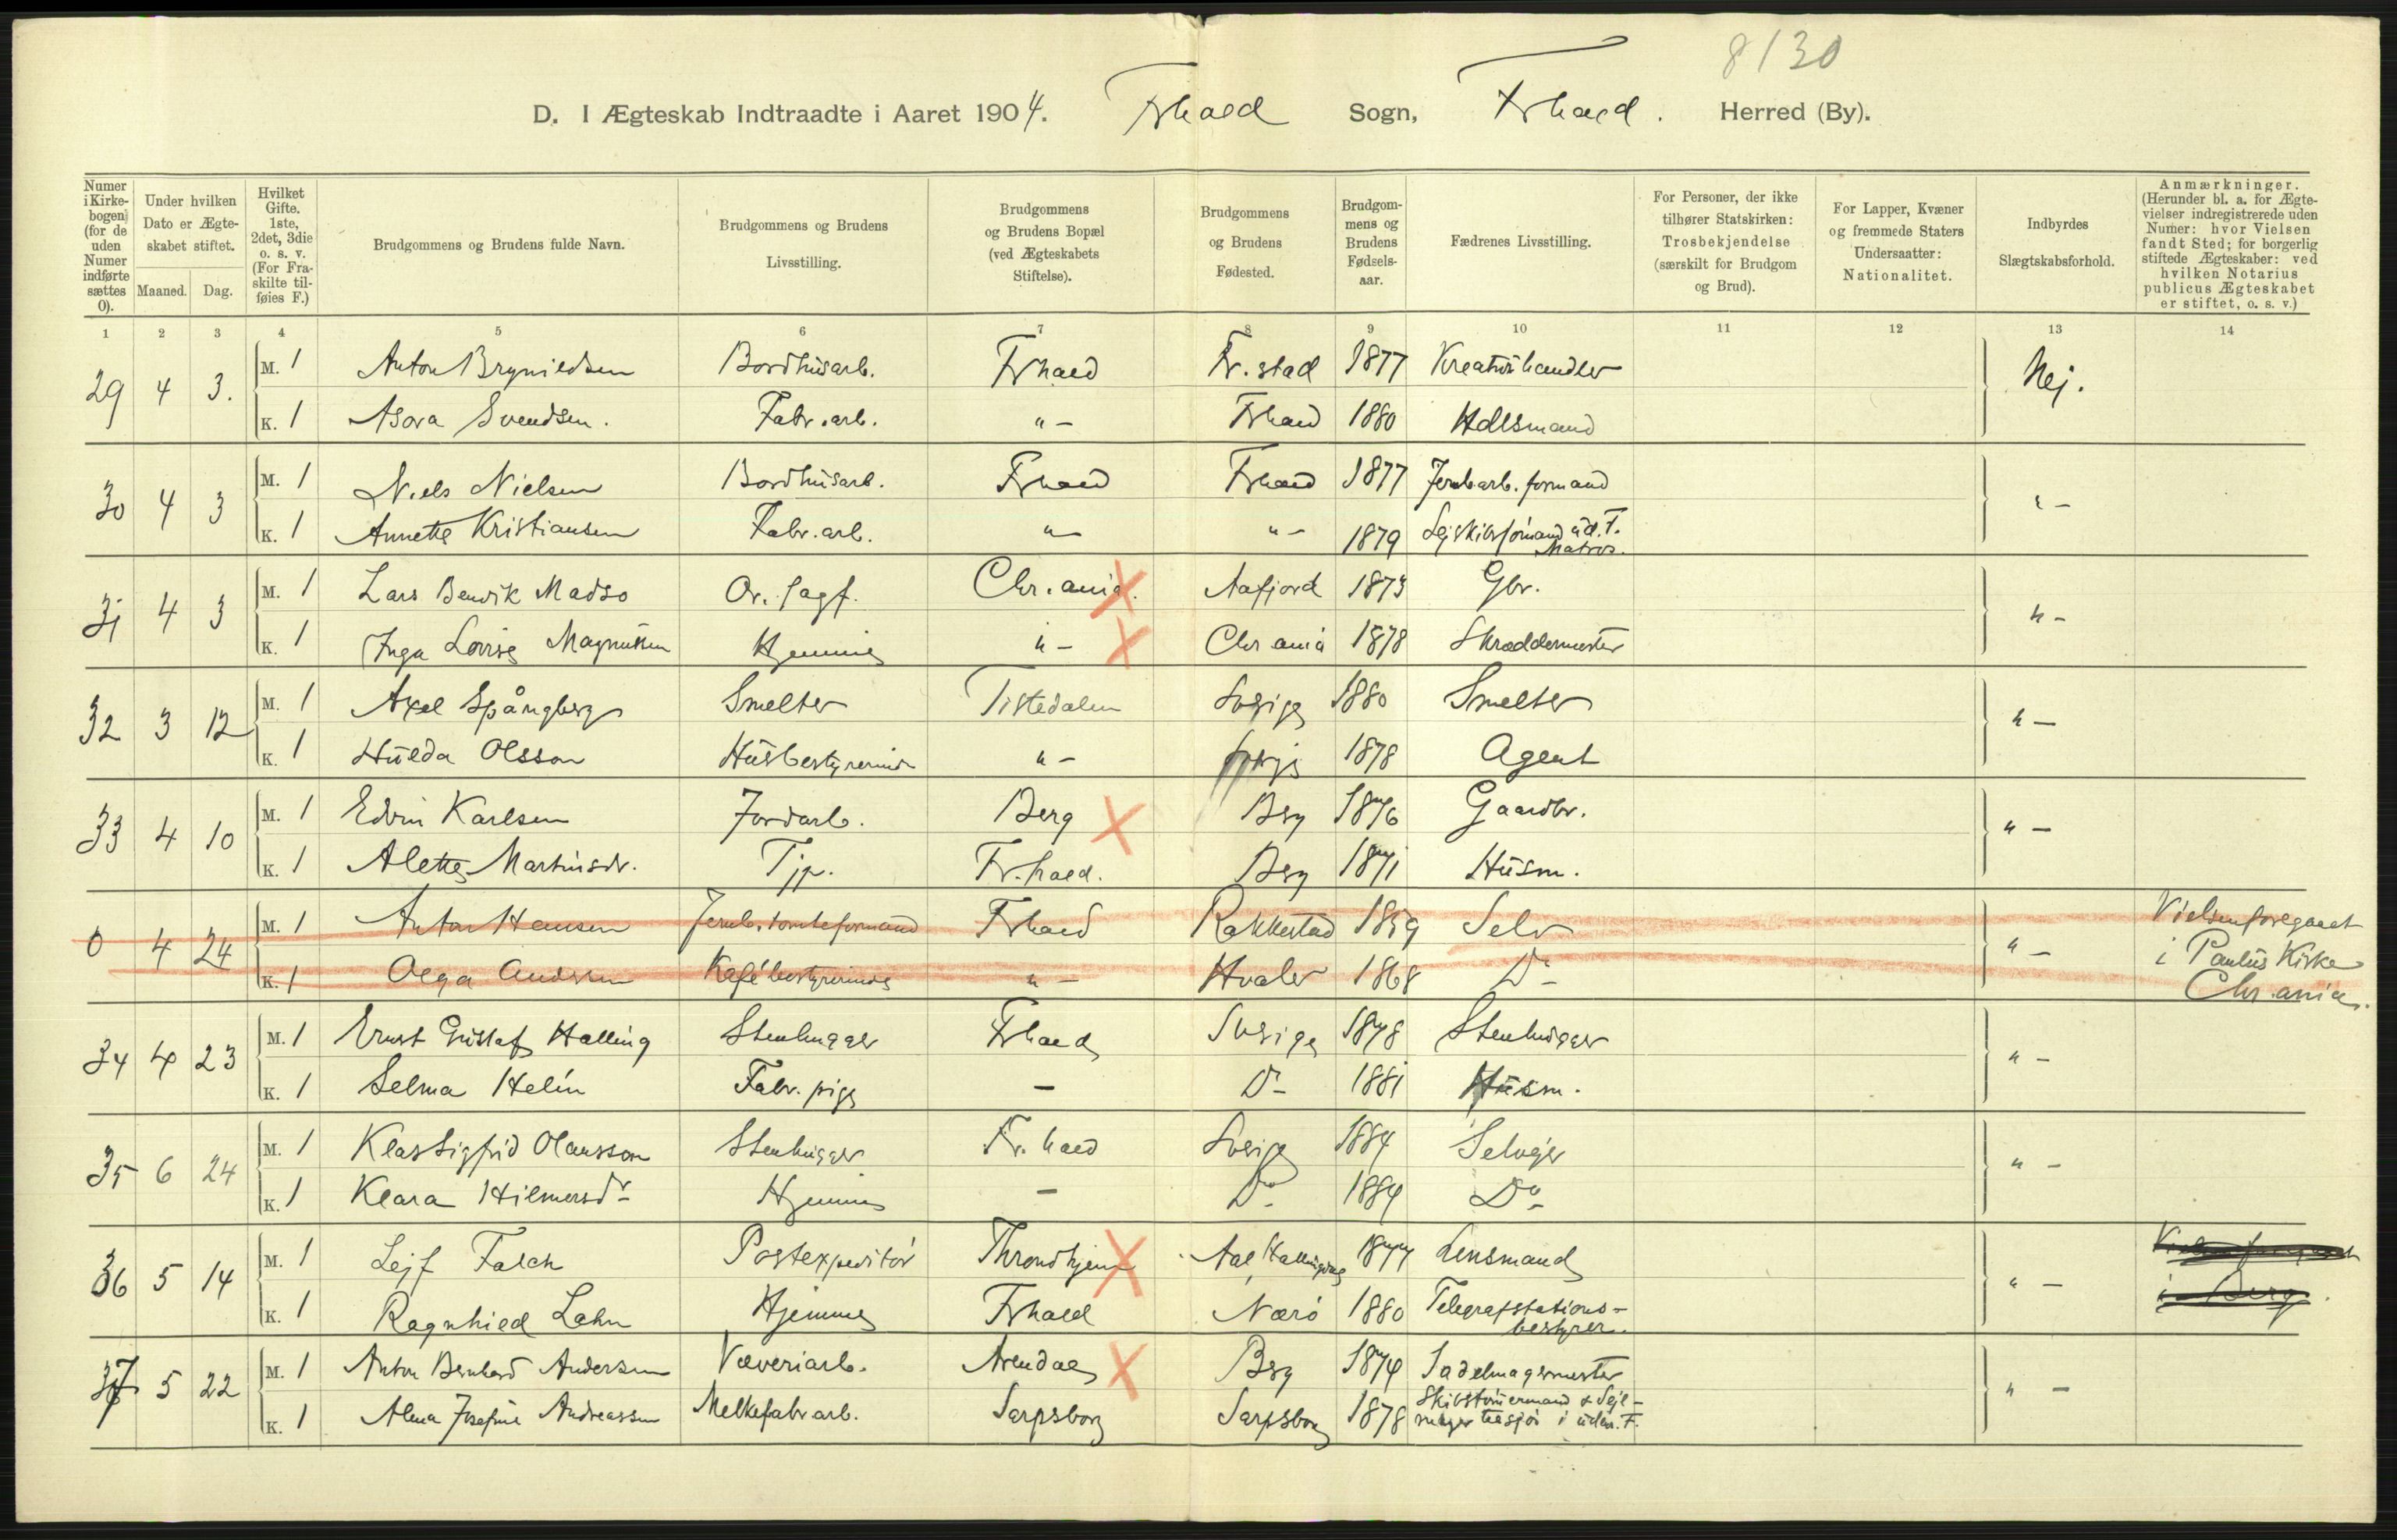 8130
D. I Ægteskab Indtraadte i Aaret 1904. Frhald Sogn, Frhald. Herred (By).
Numer i Kirkebogen (for de uden Numer indførte sættes 0).
Under hvilken Dato er Ægteskabet stiftet.
Maaned. Dag.
Hvilket Gifte. 1ste, 2det, 3die o. s. v. (For Fraskilte tilføies F.)
Brudgommens og Brudens fulde Navn.
Brudgommens og Brudens Livsstilling.
Brudgommens og Brudens Bopæl (ved Ægteskabets Stiftelse).
Brudgommens og Brudens Fødested.
Brudgommens og Brudens Fødselsaar.
Fædrenes Livsstilling.
For Personer, der ikke tilhører Statskirken: Trosbekjendelse (særskilt for Brudgom og Brud).
For Lapper, Kvæner og fremmede Staters Undersaatter: Nationalitet.
Indbyrdes Slægtskabsforhold.
Anmærkninger. (Herunder bl. a. for Ægtevielser indregistrerede uden Numer: hvor Vielsen fandt Sted; for borgerlig stiftede Ægteskaber: ved hvilken Notarius publicus Ægteskabet er stiftet, o. s. v.)
1 2 3 4 5 6 7 8 9 10 11 12 13 14
29 4 3. M. 1 Anton Brynildsen Bordhusarb. Frhald Fr.stad 1877 Kreaturhandler Nej.
K. 1 Asora Svendsen. Fabr.arb. "- Frhald 1880 Holsmand
30 4 3 M. 1 Niels Nielsen Bordhusarb. Frhald Frhald 1877 Jernb.arb.formand "-
K. 1 Annette Kristiansen Fabr.arb. "- "- 1879 ud.F. Matros.
31 4 3 M. 1 Lars Benvik Madso Or. sagf. Chr.ania. Aafjord 1873 Gbr. "-
K. 1 Inga Lovise Magnussen Hjemme "- Chr ania 1878 Skræddermester
32 3 12 M. 1 Axel Spångberg Smelter Tistedalen Sverige 1880 Smelter "-
K. 1 Hulda Olsson Husbestyrerinde "- 1878 Agent
33 4 10 M. 1 Edvin Karlsen Jordarb. Berg Berg 1876 Gaardbr. "-
K. 1 Alette Martinsdr. Tjp. Fr.hald. Berg 1871 Husm.
0 4 24 M. 1 Anton Hansen Jernb.tomteformand Frhald Rakkestad 1859 Selv "- Vielsen foregaaet
K. 1 Olga Andersen Kafébestyrerinde "- Hvaler 1868 Do- i Paulus Kirke
Chr.ania.
34 4 23 M. 1 Ernst Gustaf Halling Stenhugger Frhald Sverige 1878 Stenhugger "-
K. 1 Selma Helin Fabr.pige - Do- 1881 Husm.
35 6 24 M. 1 Klas Sigfrid Olausson Stenhugger Fr.hald Sverige 1884 Selvejer "-
K. 1 Klara Hilmersdr- Hjemme - Do- 1884 Do-
36 5 14 M. 1 Lejf Falch Postexpeditör Throndhjem Aal Hallingdal 1877 Lensmand "- Vielsen foregaaet
K. 1 Ragnhild Lahn Hjemme Frhald Nærö 1880 Telegrafstations- i Berg.
bestyrer.
37 5 22 M. 1 Anton Bernhard Andersen Væveriarb. Arendal Berg 1874 Sadelmagermester "-
K. 1 Alma Josefine Andreassen Melkefabrarb. Sarpsborg Sarpsborg 1878 Skibstömermand & Sejl-
mager tilsjös i uden. F.